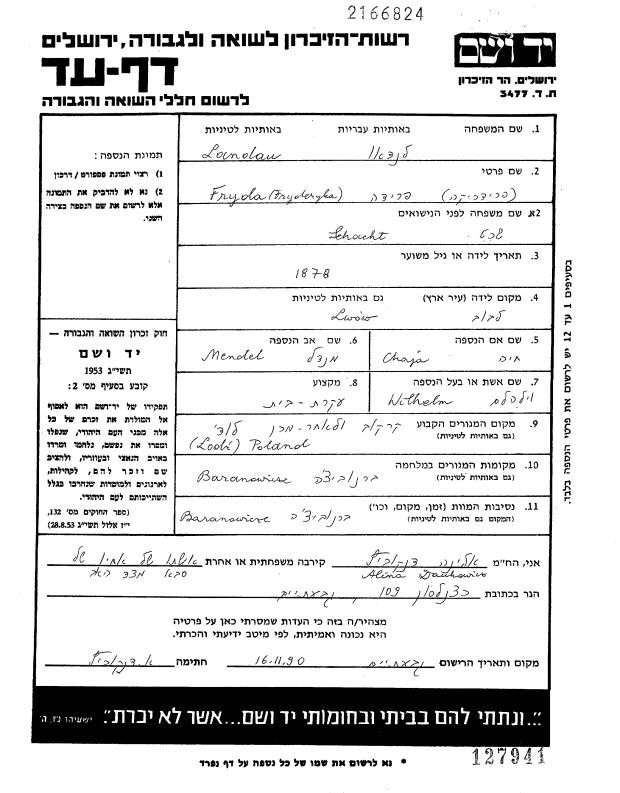 2166824
רשות-הזיכרון לשואה ולגבורה, ירושלים
דף-עד
לרשום חללי השואה והגבורה
יד ושם
ירושלים, הר הזיכרון
ת. ד. 3477
תמונת הנספה:
1) רצוי תמונת פספורט / דרכון
2) נא לא להדביק את התמונה
אלא לרשום את שם הנספה בצידה
השני.
חוק זכרון השואה והגבורה —
יד ושם
תשי״ג 1953
קובע בסעיף מס׳ 2:
תפקידו של יד-ושם הוא לאסוף
אל המולדת את זכרם של כל
אלה מבני העם היהודי, שנפלו
ומסרו את נפשם, נלחמו ומרדו
באויב הנאצי ובעוזריו, ולהציב
שם וזכר להם, לקהילות,
לארגונים ולמוסדות שנחרבו בגלל
השתייכותם לעם היהודי.
(ספר החוקים מס׳ 132,
י״ז אלול תשי״ג 28.8.53)
1. שם המשפחה באותיות עבריות באותיות לטיניות
לנדאו Landau
2. שם פרטי
(פרידריקה) פרידה Fryda (Fryderyka)
2א. שם משפחה לפני הנישואים
שכט Schacht
3. תאריך לידה או גיל משוער
1878
4. מקום לידה (עיר ארץ) גם באותיות לטיניות
לבוב Lwów
5. שם אם הנספה
חיה Chaja
6. שם אב הנספה
מנדל Mendel
7. שם אשת או בעל הנספה
וילהלם Wilhelm
8. מקצוע
עקרת-בית
9. מקום המגורים הקבוע
(גם באותיות לטיניות)
קרקוב ולאחר-מכן לודז'
(Lodź) Poland
10. מקומות המגורים במלחמה
(גם באותיות לטיניות)
ברנוביצ'ה Baranowicze
11. נסיבות המוות (זמן, מקום, וכו׳)
(המקום גם באותיות לטיניות)
ברנוביצ'ה Baranowicze
בסעיפים 1 עד 12 יש לרשום את פרטי הנספה בלבד.
אני, הח״מ אלינה קירבה משפחתית או אחרת אשתו של אחיו של
Alina סבא מצד האב
הגר בכתובת כצנלסון 109, גבעתיים
מצהיר/ה בזה כי העדות שמסרתי כאן על פרטיה
היא נכונה ואמיתית, לפי מיטב ידיעתי והכרתי.
מקום ותאריך הרישום גבעתיים 16.11.90 חתימה
״...ונתתי להם בביתי ובחומותי יד ושם...אשר לא יכרת״. ישעיהו נ״ו, ה׳
127941
* נא לרשום את שמו של כל נספה על דף נפרד